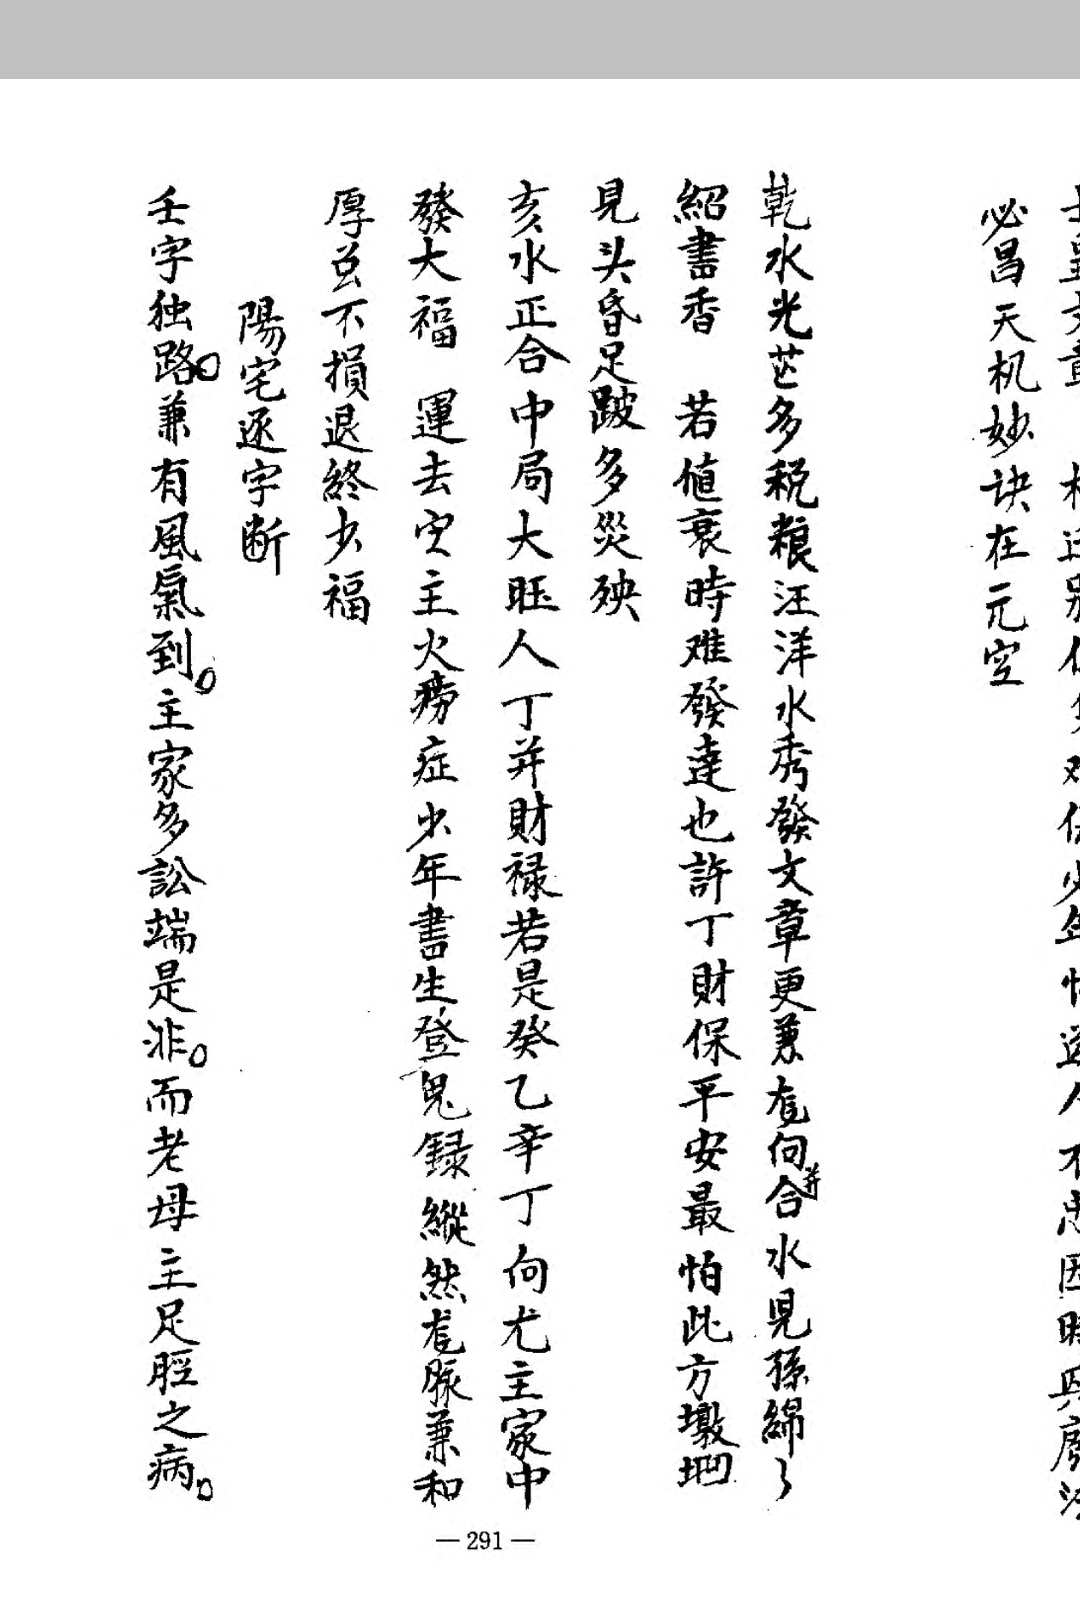 必昌天机妙诀在元空
乾水光芒多税粮汪洋水秀發文章更兼向合水児孫綿々
并
紹書香 若值衰時难發達也許丁財保平安最怕此方墩凹
見头昏足跛多災殃
亥水正合中局大旺人丁并財禄若是癸乙辛丁向尤主家中
發大福 運去定主火痨症少年書生登鬼録縱然脉兼和
厚总不損退終少福
陽宅逐字断
壬字独路。兼有風氣到。主家多訟端是非。而老母主足脛之病。
— 291 —